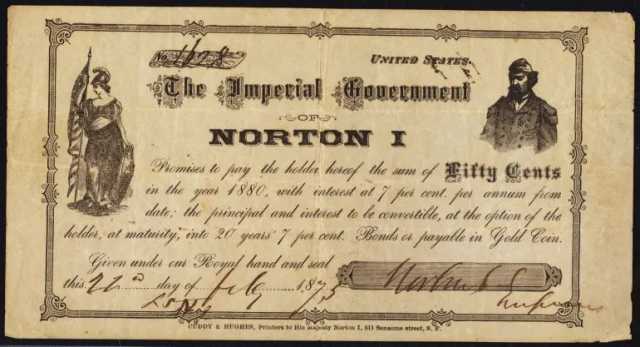 No. 1678
UNITED STATES.
The Imperial Government
OF
NORTON I
Promises to pay the holder hereof the sum of Fifty Cents
in the year 1880, with interest at 7 per cent. per annum from
date; the principal and interest to be convertible, at the option of the
holder, at maturity, into 20 years' 7 per cent. Bonds or payable in Gold Coin.
Given under our Royal hand and seal
this 22nd day of 187 Norton I
Emperor
CUDDY & HUGHES, Printers to His majesty Norton I, 511 Sansome street, S. F.